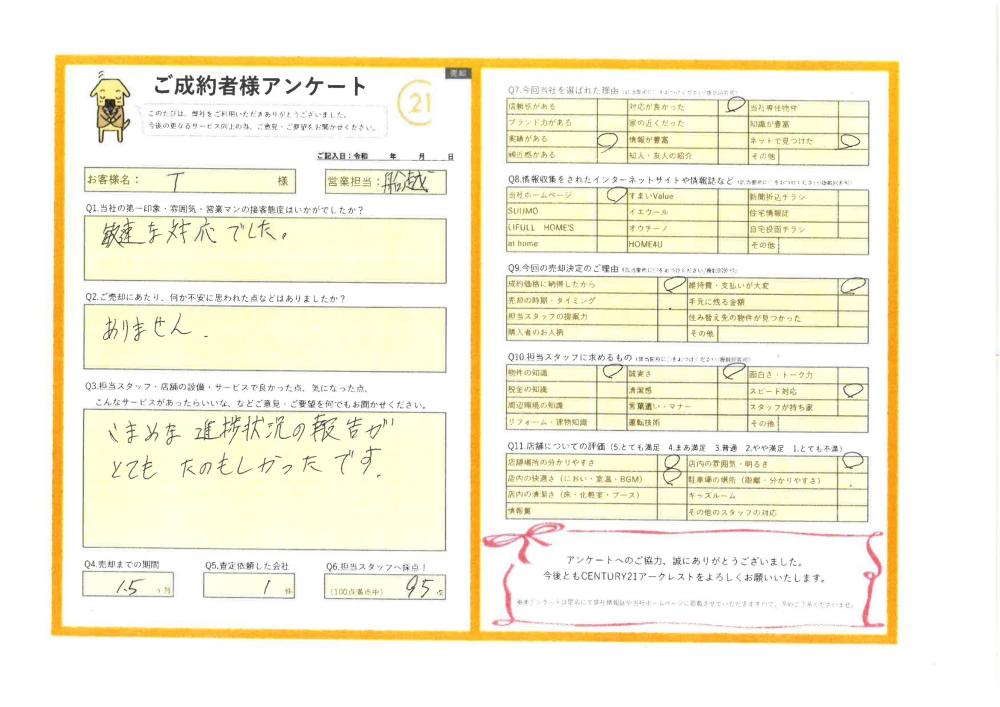 売却
ご成約者様アンケート
21
このたびは、弊社をご利用いただきありがとうございました。
今後の更なるサービス向上の為、ご意見・ご要望をお聞かせください。
ご記入日：令和　年　月　日
お客様名： T 様
営業担当： 船越
Q1.当社の第一印象・雰囲気・営業マンの接客態度はいかがでしたか？
敏速な対応でした。
Q2.ご売却にあたり、何か不安に思われた点などはありましたか？
ありません.
Q3.担当スタッフ・店舗の設備・サービスで良かった点、気になった点、
こんなサービスがあったらいいな、などご意見・ご要望を何でもお聞かせください。
こまめな進捗状況の報告が
とてもたのもしかったです.
Q4.売却までの期間
1.5 ヶ月
Q5.査定依頼した会社
1 件
Q6.担当スタッフへ採点！
(100点満点中) 95 点
Q7.今回当社を選ばれた理由
信頼感がある 対応が良かった 当社専任物件
ブランド力がある 家の近くだった 知識が豊富
実績がある 情報が豊富 ネットで見つけた
親近感がある 知人・友人の紹介 その他
Q8.情報収集をされたインターネットサイトや情報誌など
当社ホームページ すまいValue 新聞折込チラシ
SUUMO イエウール 住宅情報誌
LIFULL HOME'S オウチーノ 自宅投函チラシ
at home HOME4U その他
Q9.今回の売却決定のご理由
成約価格に納得したから 維持費・支払いが大変
売却の時期・タイミング 手元に残る金額
担当スタッフの提案力 住み替え先の物件が見つかった
購入者のお人柄 その他
Q10.担当スタッフに求めるもの
物件の知識 誠実さ 面白さ・トーク力
税金の知識 清潔感 スピード対応
周辺環境の知識 言葉遣い・マナー スタッフが持ち家
リフォーム・建物知識 運転技術 その他
Q11.店舗についての評価 (5.とても満足 4.まあ満足 3.普通 2.やや満足 1.とても不満)
店舗場所の分かりやすさ 店内の雰囲気・明るさ
店内の快適さ (におい・室温・BGM) 駐車場の場所 (距離・分かりやすさ)
店内の清潔さ (床・化粧室・ブース) キッズルーム
情報量 その他のスタッフの対応
アンケートへのご協力、誠にありがとうございました。
今後ともCENTURY21アークレストをよろしくお願いいたします。